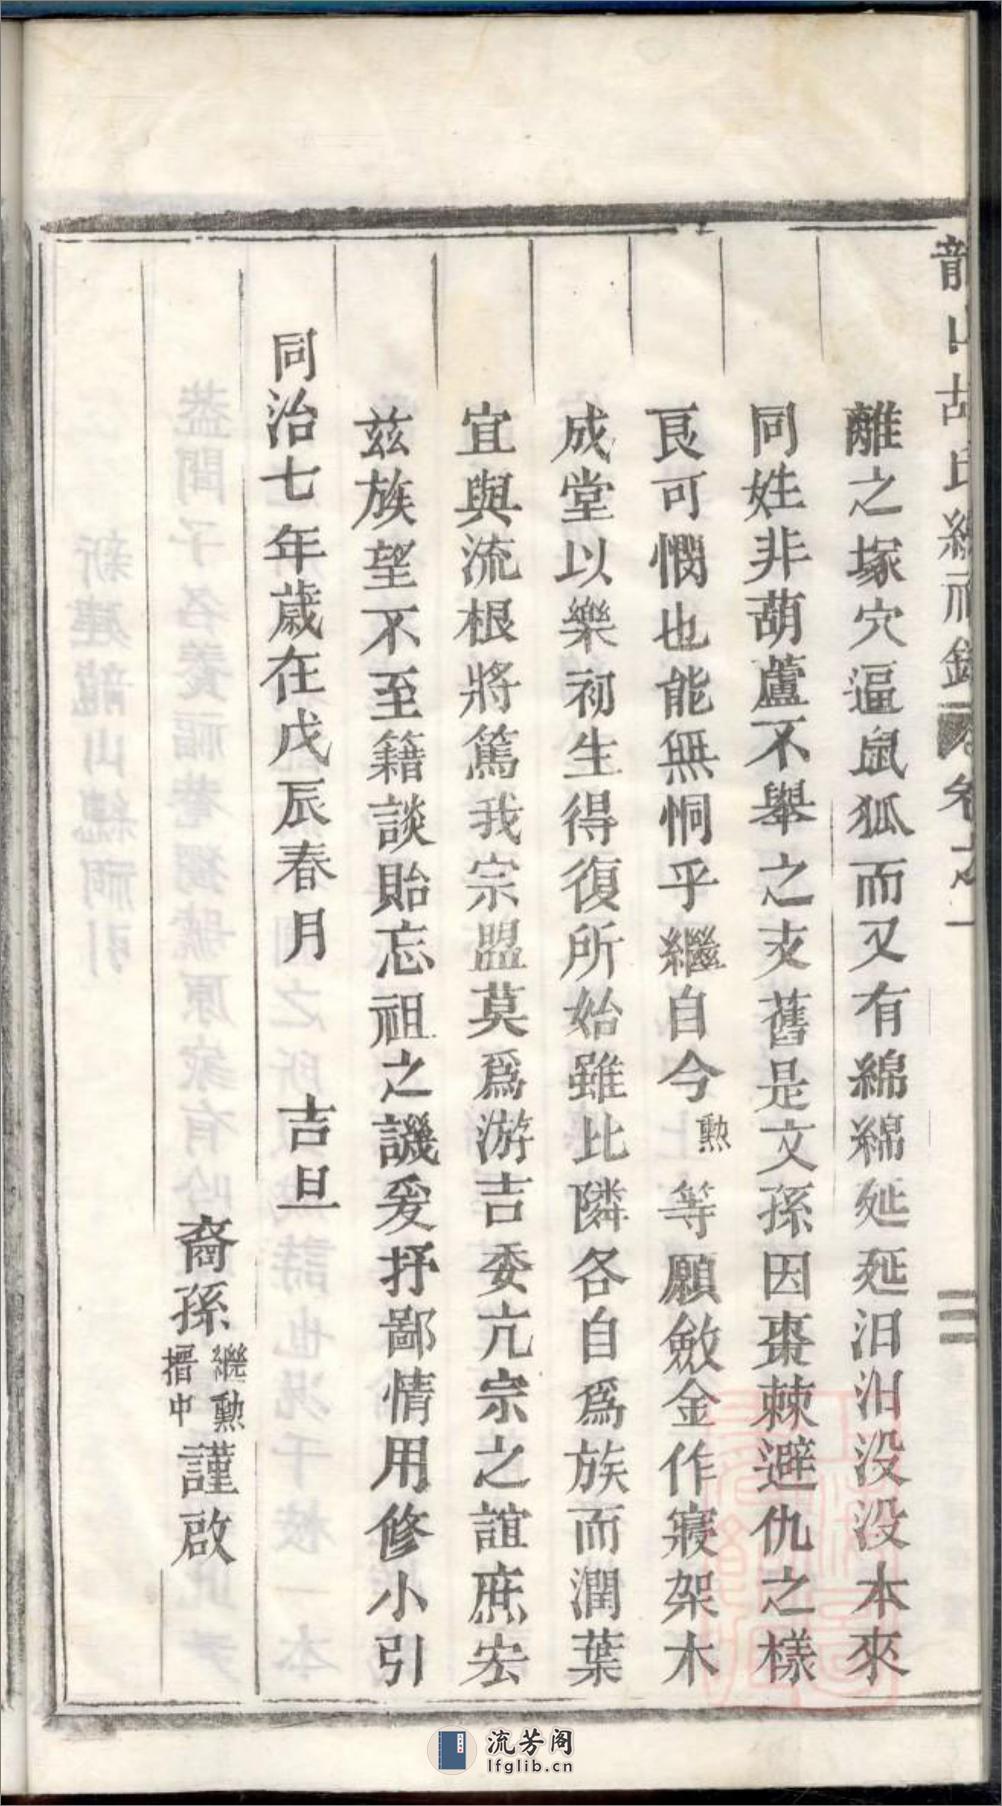 龍山胡氏總祠錄 卷之一
二
離之塚穴逼鼠狐而又有綿綿延延汨汨没没本來
同姓非葫蘆不舉之支舊是文孫因棗棘避仇之樣
良可憫也能無恫乎繼自今勲等願斂金作寢架木
成堂以樂初生得復所始雖比隣各自爲族而潤葉
宜與流根將篤我宗盟莫爲游吉委亢宗之誼庶宏
兹族望不至籍談貽忘祖之譏爰抒鄙情用修小引
同治七年歲在戊辰春月 吉旦
裔孫繼勲搢中謹啟
流芳阁
lfglib.cn